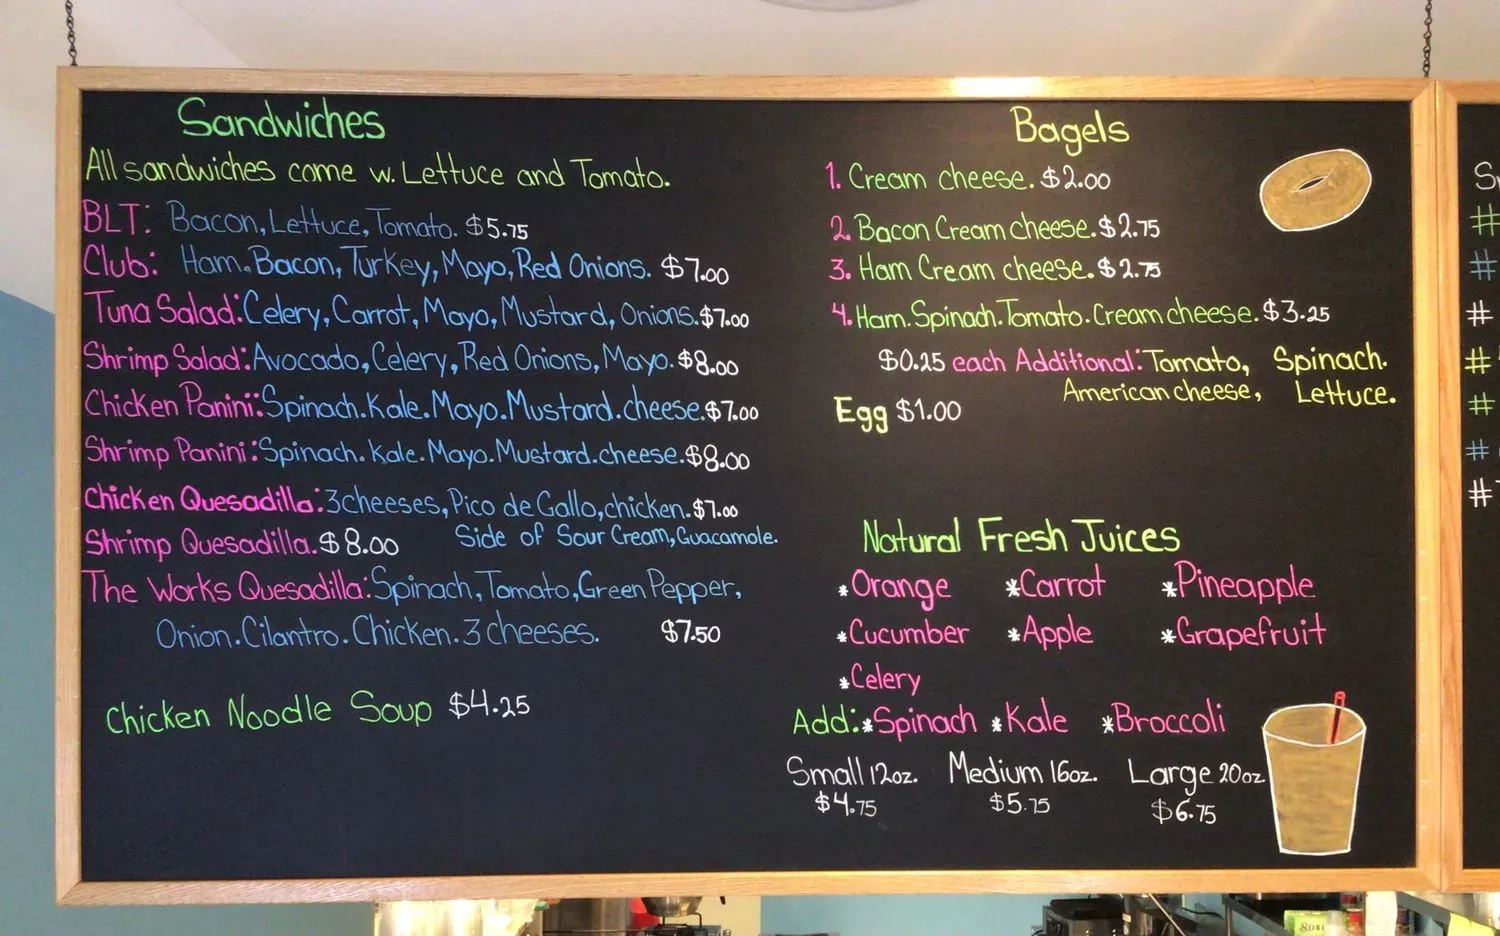 Sandwiches
All sandwiches come w. Lettuce and Tomato.
BLT: Bacon, Lettuce, Tomato. $5.75
Club: Ham. Bacon, Turkey, Mayo, Red Onions. $7.00
Tuna Salad: Celery, Carrot, Mayo, Mustard, Onions. $7.00
Shrimp Salad: Avocado, Celery, Red Onions, Mayo. $8.00
Chicken Panini: Spinach. Kale. Mayo. Mustard. cheese. $7.00
Shrimp Panini: Spinach. Kale. Mayo. Mustard. cheese. $8.00
Chicken Quesadilla: 3 cheeses, Pico de Gallo, chicken. $7.00
Shrimp Quesadilla. $8.00 Side of Sour Cream, Guacamole.
The Works Quesadilla: Spinach, Tomato, Green Pepper,
Onion. Cilantro. Chicken. 3 cheeses. $7.50
Chicken Noodle Soup $4.25
Bagels
1. Cream cheese. $2.00
2. Bacon Cream cheese. $2.75
3. Ham Cream cheese. $2.75
4. Ham. Spinach. Tomato. Cream cheese. $3.25
$0.25 each Additional: Tomato, Spinach.
American cheese, Lettuce.
Egg $1.00
Natural Fresh Juices
*Orange *Carrot *Pineapple
*Cucumber *Apple *Grapefruit
*Celery
Add: *Spinach *Kale *Broccoli
Small 12oz. Medium 16oz. Large 20oz
$4.75 $5.75 $6.75
#
#
#
#
#
#
#